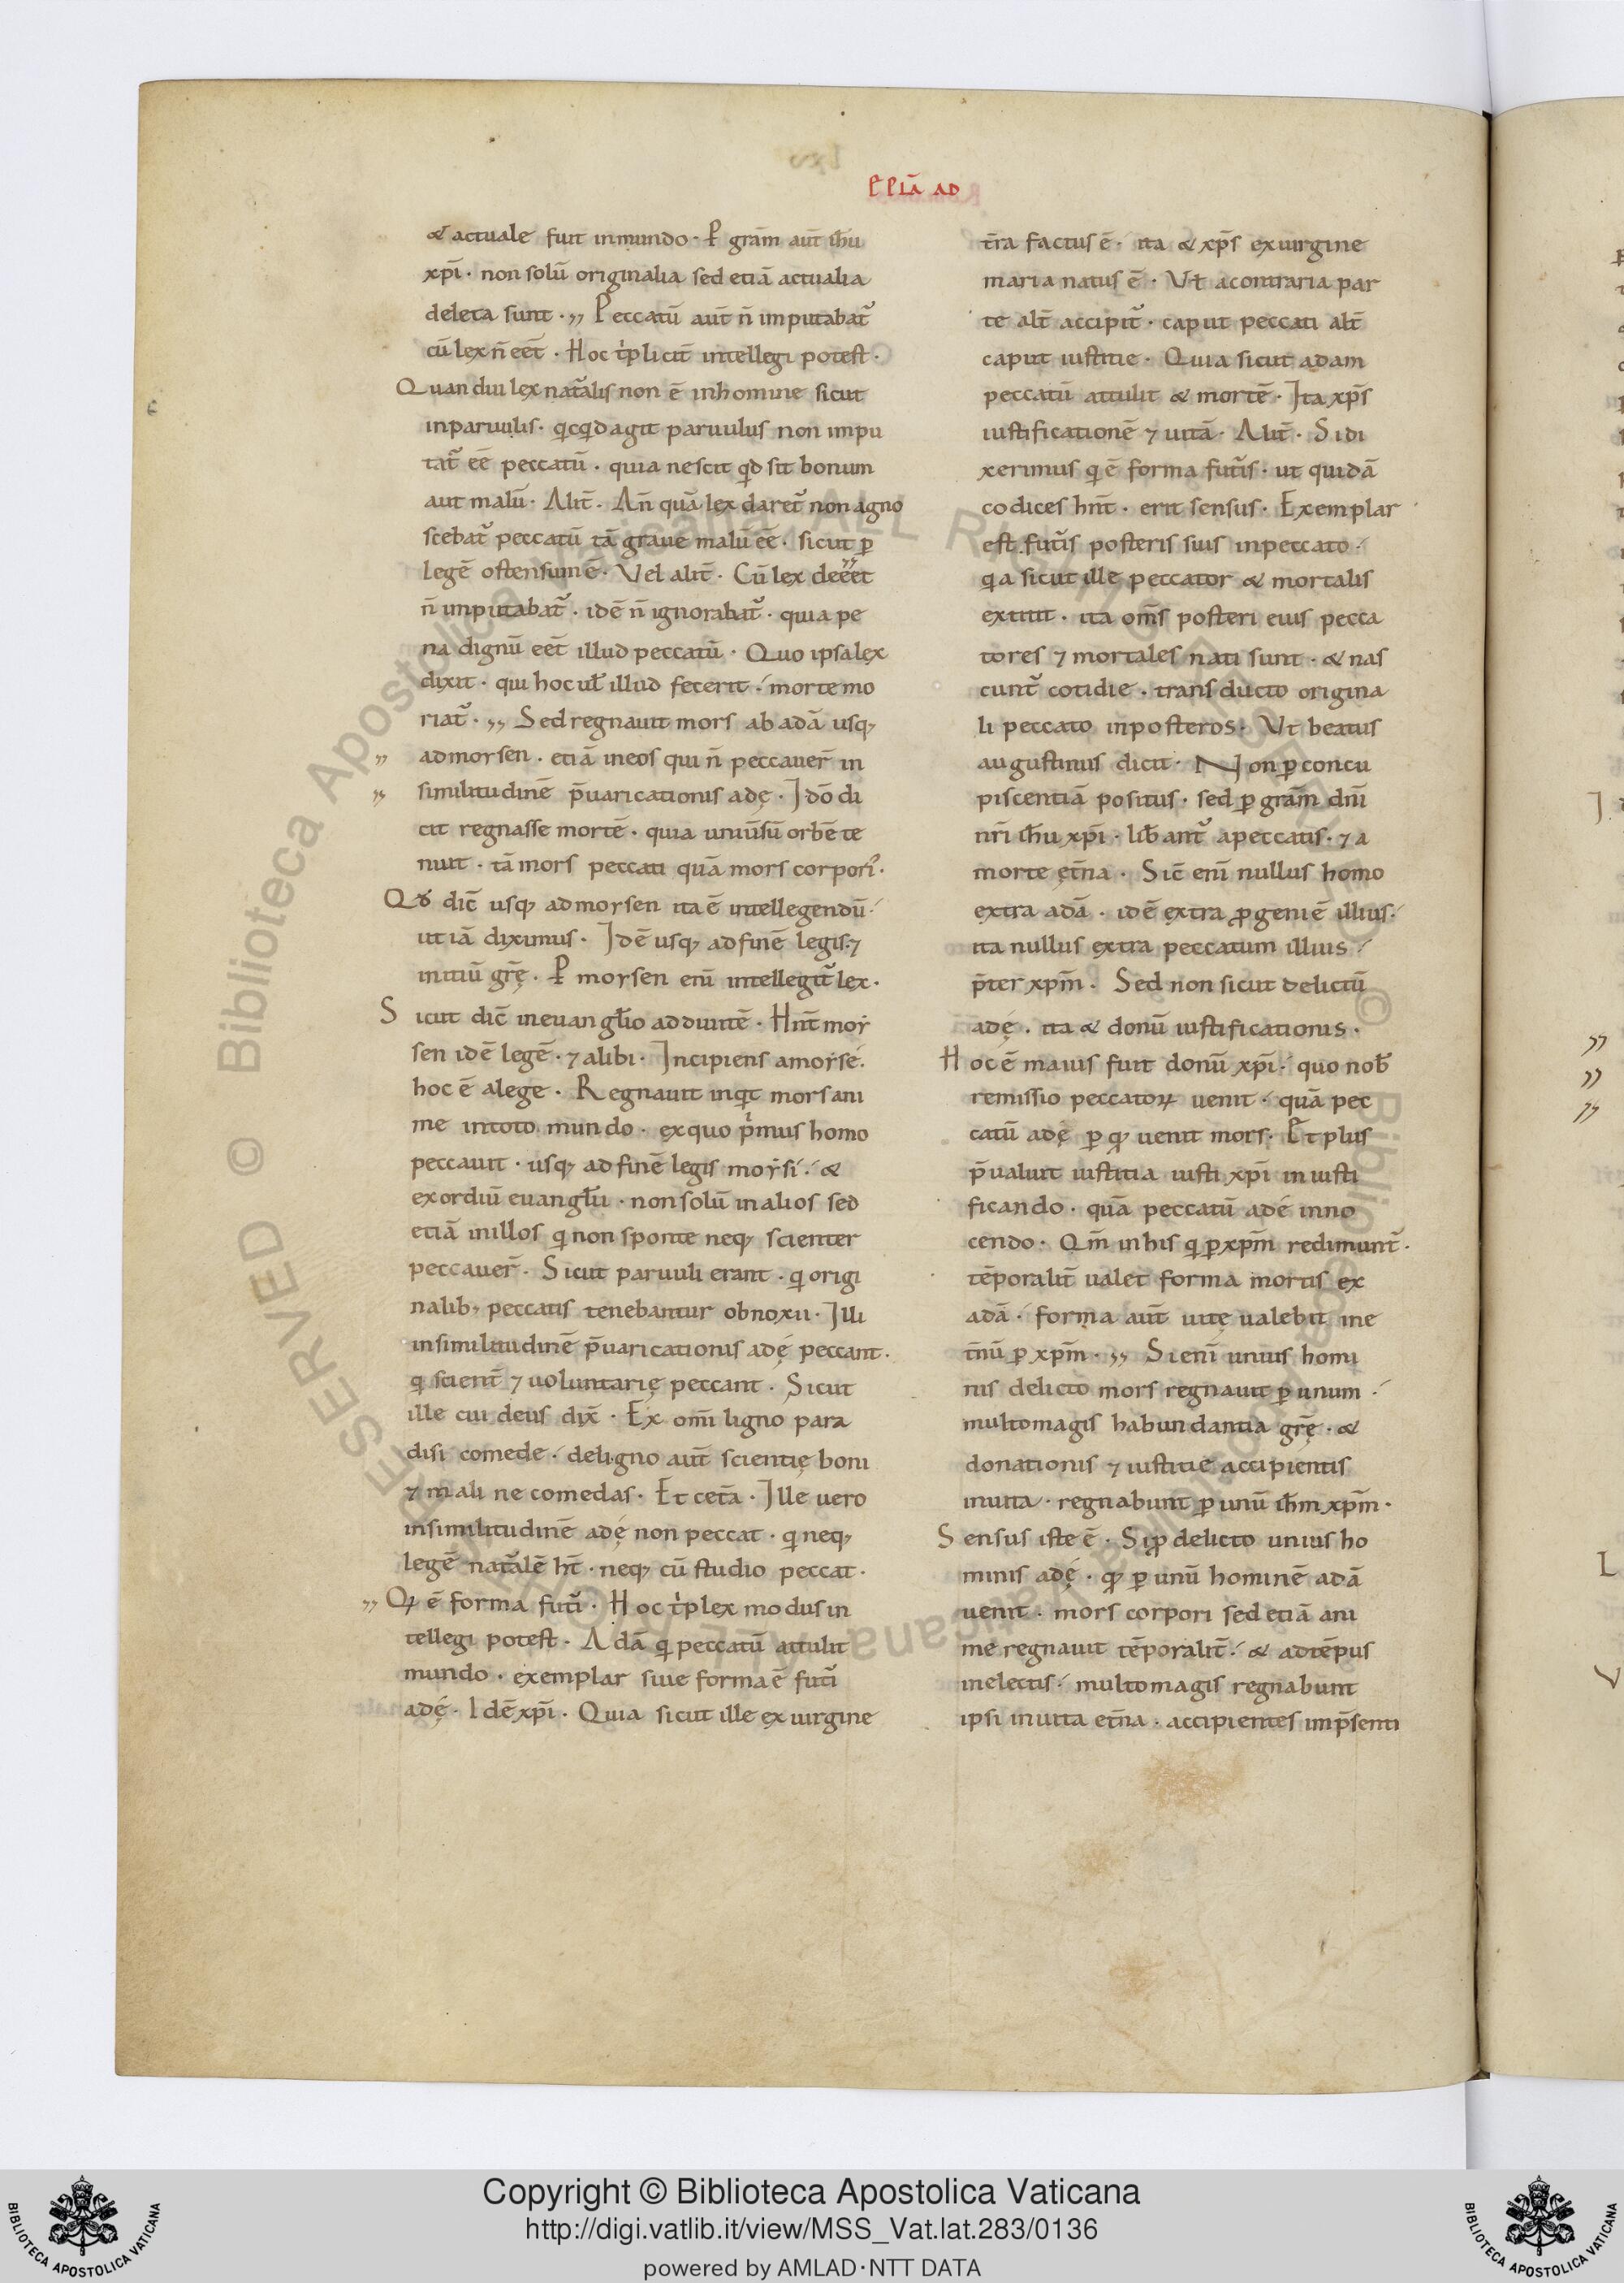 EPLA AD
& actuale fuit inmundo · P grām aut̄ ih̄u
xp̄i · non solū originalia sed etiā actualia
deleta sunt · ,, Peccatū aut̄ n̄ imputabat᷑
cū lex n̄ eet̄ · Hoc tplicit̄ intellegi potest ·
Quandiu lex nat᷑alis non ē inhomine sicut
inparuulis · qcqd agit paruulus non impu
tat᷑ eē peccatū · quia nescit qd sit bonum
aut malū · Alit̄ · An̄ quā lex daret᷑ non agno
scebat᷑ peccatū tā graue malū eē · sicut p̱
legē ostensum ē · Vel alit̄ · Cū lex deeēt
n̄ imputabat᷑ · idē n̄ ignorabat᷑ · quia pe
na dignū eet̄ illud peccatū · Quo ipsa lex
dixit · qui hoc ul̄ illud fecerit · morte mo
riat᷑ · ,, Sed regnauit mors ab adā usq;
,, admorsen · etiā ineos qui n̄ peccauer̄ in
,, similitudinē p̄uaricationis adę · Idō di
cit regnasse mortē · quia uniūsū orbē te
nuit · tā mors peccati quā mors corpori᷑ ·
Qd̄ dic̄ usq; admorsen ita ē intellegendū ·
ut iā diximus · Idē usq; adfinē legis · ⁊
initiū gr̄ę · P morsen enī intellegit᷑ lex ·
Sicut dic̄ ineuangl̄io addiuitē · Hn̄t moy
sen idē legē · ⁊ alibi · Incipiens amoysé ·
hoc ē alege · Regnauit inqt mors ani
me intoto mundo · exquo pimus homo
peccauit · usq; adfinē legis moysi · &
exordiū euangl̄ii · nonsolū inalios sed
etiā inillos q non sponte neq; scienter
peccauer̄ · Sicut paruuli erant · q origi
nalib; peccatis tenebantur obnoxii · Illi
insimilitudinē p̄uaricationis adę peccant ·
q scient̄ ⁊ uoluntarię peccant · Sicut
ille cui deus dix̄ · Ex om̄i ligno para
disi comede · deligno aut̄ scientię boni
⁊ mali ne comedas · Et cet̄a · Ille uero
insimilitudinē adę non peccat · q neq;
legē nat᷑alē ht̄ · neq; cū studio peccat ·
,, Q ē forma fut᷑i · Hoc tplex modus in
tellegi potest · Adā q peccatū attulit
mundo · exemplar siue forma ē fut᷑i
adę · Idē xp̄i · Quia sicut ille exuirgine
t̄ra factus ē · ita & xp̄s exuirgine
maria natus ē · Vel acontraria par
te alt̄ accipit᷑ · caput peccati alt̄
caput iustitie · Quia sicut adam
peccatū attulit & mortē · Ita xp̄s
iustificationē ⁊ uitā · Alit̄ · Si di
xerimus q ē forma fut᷑is · ut quidā
codices hn̄t · erit sensus · Exemplar
est fut᷑is posteris suis inpeccato ·
qa sicut ille peccator & mortalis
extitit · ita om̄s posteri eius pecca
tores ⁊ mortales nati sunt · & nas
cunt᷑ cotidie · transducto origina
li peccato inposteros · Vt beatus
augustinus dicit · Non p̱ concu
piscentiā positus · sed p̱ grām dn̄i
nr̄i ih̄u xp̄i · lib̄ant᷑ apeccatis · ⁊ a
morte et̄na · Sic̄ enī nullus homo
extra adā · idē extra ꝓgeniē illius ·
ita nullus extra peccatum illius ·
p̄ter xp̄m · Sed non sicut delictū
adę · ita & donū iustificationis ·
Hoc ē maius fuit donū xp̄i · quo nob̄
remissio peccatoꝝ uenit · quā pec
catū adę p̱ q; uenit mors · Et plus
p̄ualuit iustitia iusti xp̄i iniusti
ficando · quā peccatū adę inno
cendo · Qm̄ inhis q p̱xp̄m redimunt᷑ ·
tēporalit̄ ualet forma mortis ex
adā · forma aut̄ uitę ualebit ine
t̄nū p̱ xp̄m · ,, Si enī unius homi
nis delicto mors regnauit p̱ unum ·
multomagis habundantia gr̄ę · &
donationis ⁊ iustitie accipientis
inuita · regnabunt p̱ unū ih̄m xp̄m ·
Sensus iste ē · Si ꝓ delicto unius ho
minis adę · q; p̱ unū hominē adā
uenit · mors corpori sed etiā ani
me regnauit tēporalit̄ · & adtēpus
inelectis · multomagis regnabunt
ipsi inuita et̄na · accipientes inp̄senti
Copyright © Biblioteca Apostolica Vaticana
http://digi.vatlib.it/view/MSS_Vat.lat.283/0136
powered by AMLAD·NTT DATA
BIBLIOTECA APOSTOLICA VATICANA
BIBLIOTECA APOSTOLICA VATICANA